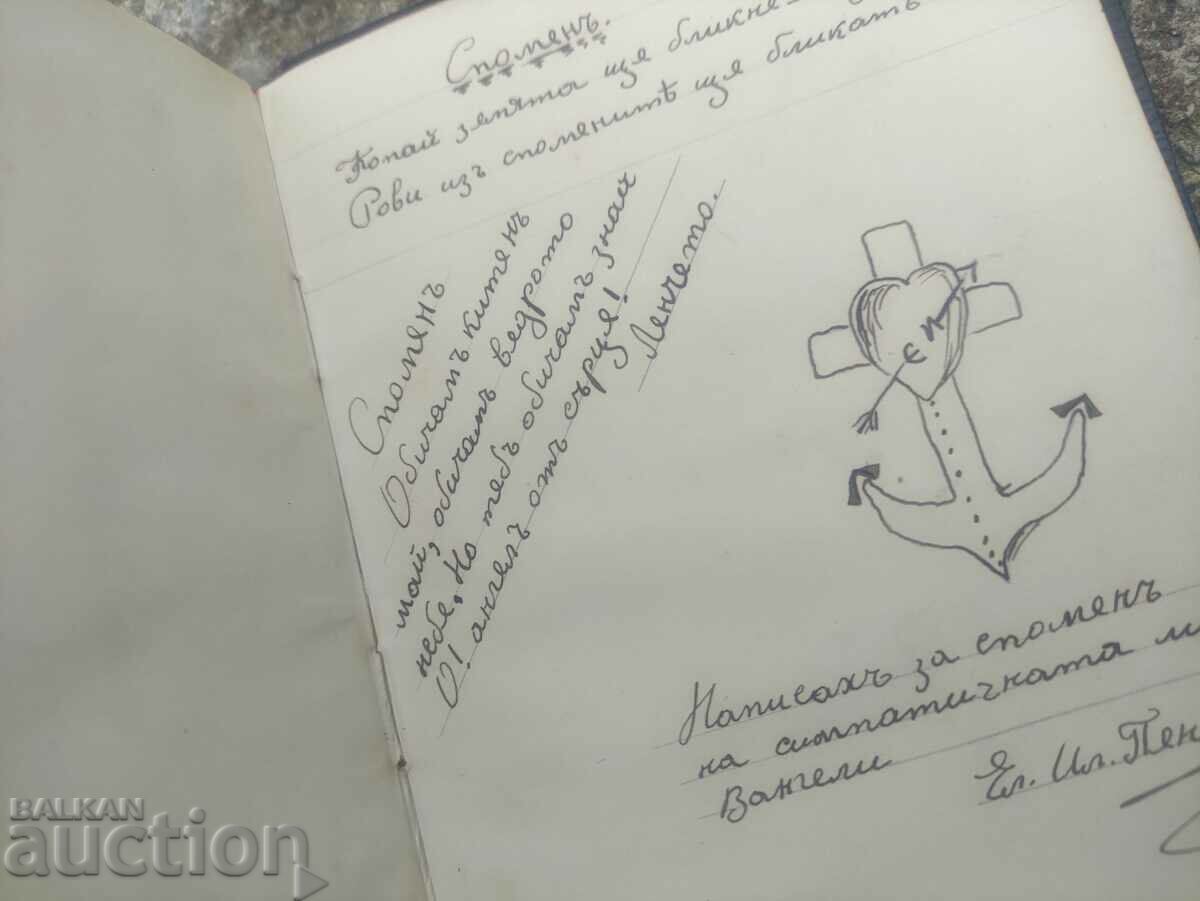 Споменъ.
Копай земята ще бликне
Рови изъ споменитѣ ще бликатъ
Споменъ
Обичамъ китенъ
май, обичамъ ведрото
небе, Но тебъ обичамъ знай
О! ангелъ отъ сърце!
Ленчето.
Е П
Написахъ за споменъ
на симпатичната
Вангели
Ел. Ил. Пен
BALKAN
auction